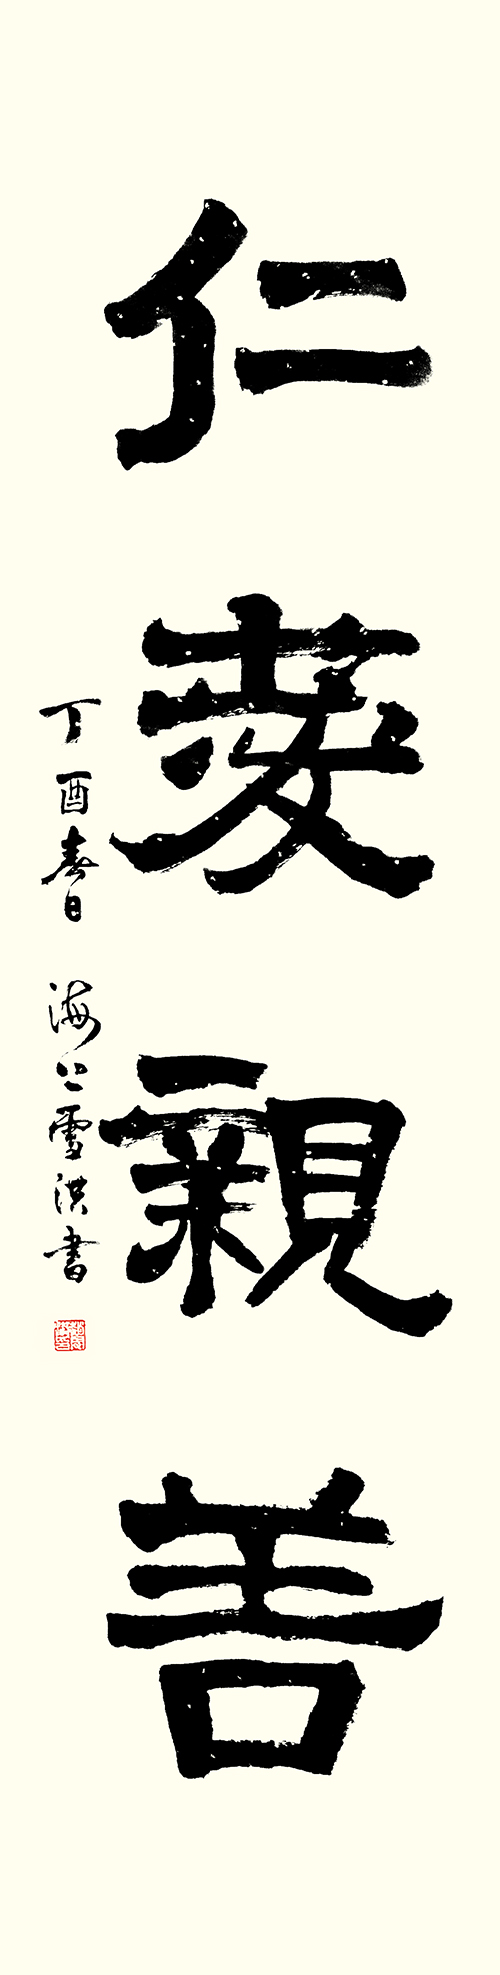 仁愛親善
丁酉春日 海上雪洪書